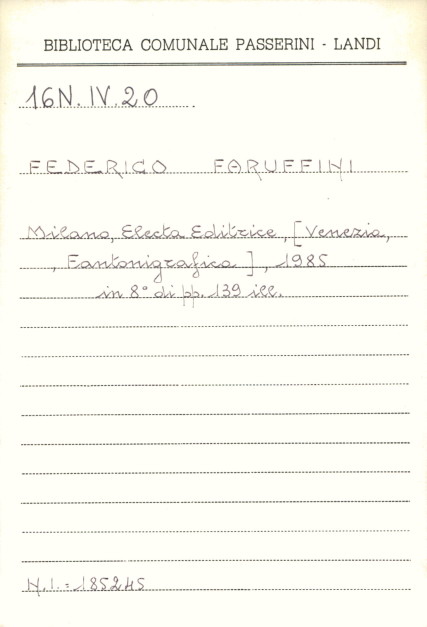 BIBLIOTECA COMUNALE PASSERINI - LANDI
16N.IV.20
FEDERICO FARUFFINI
Milano, Electa Editrice, [Venezia,
, Fantonigrafica ], 1985
in 8° di pp. 139 ill.
N.I.=185245